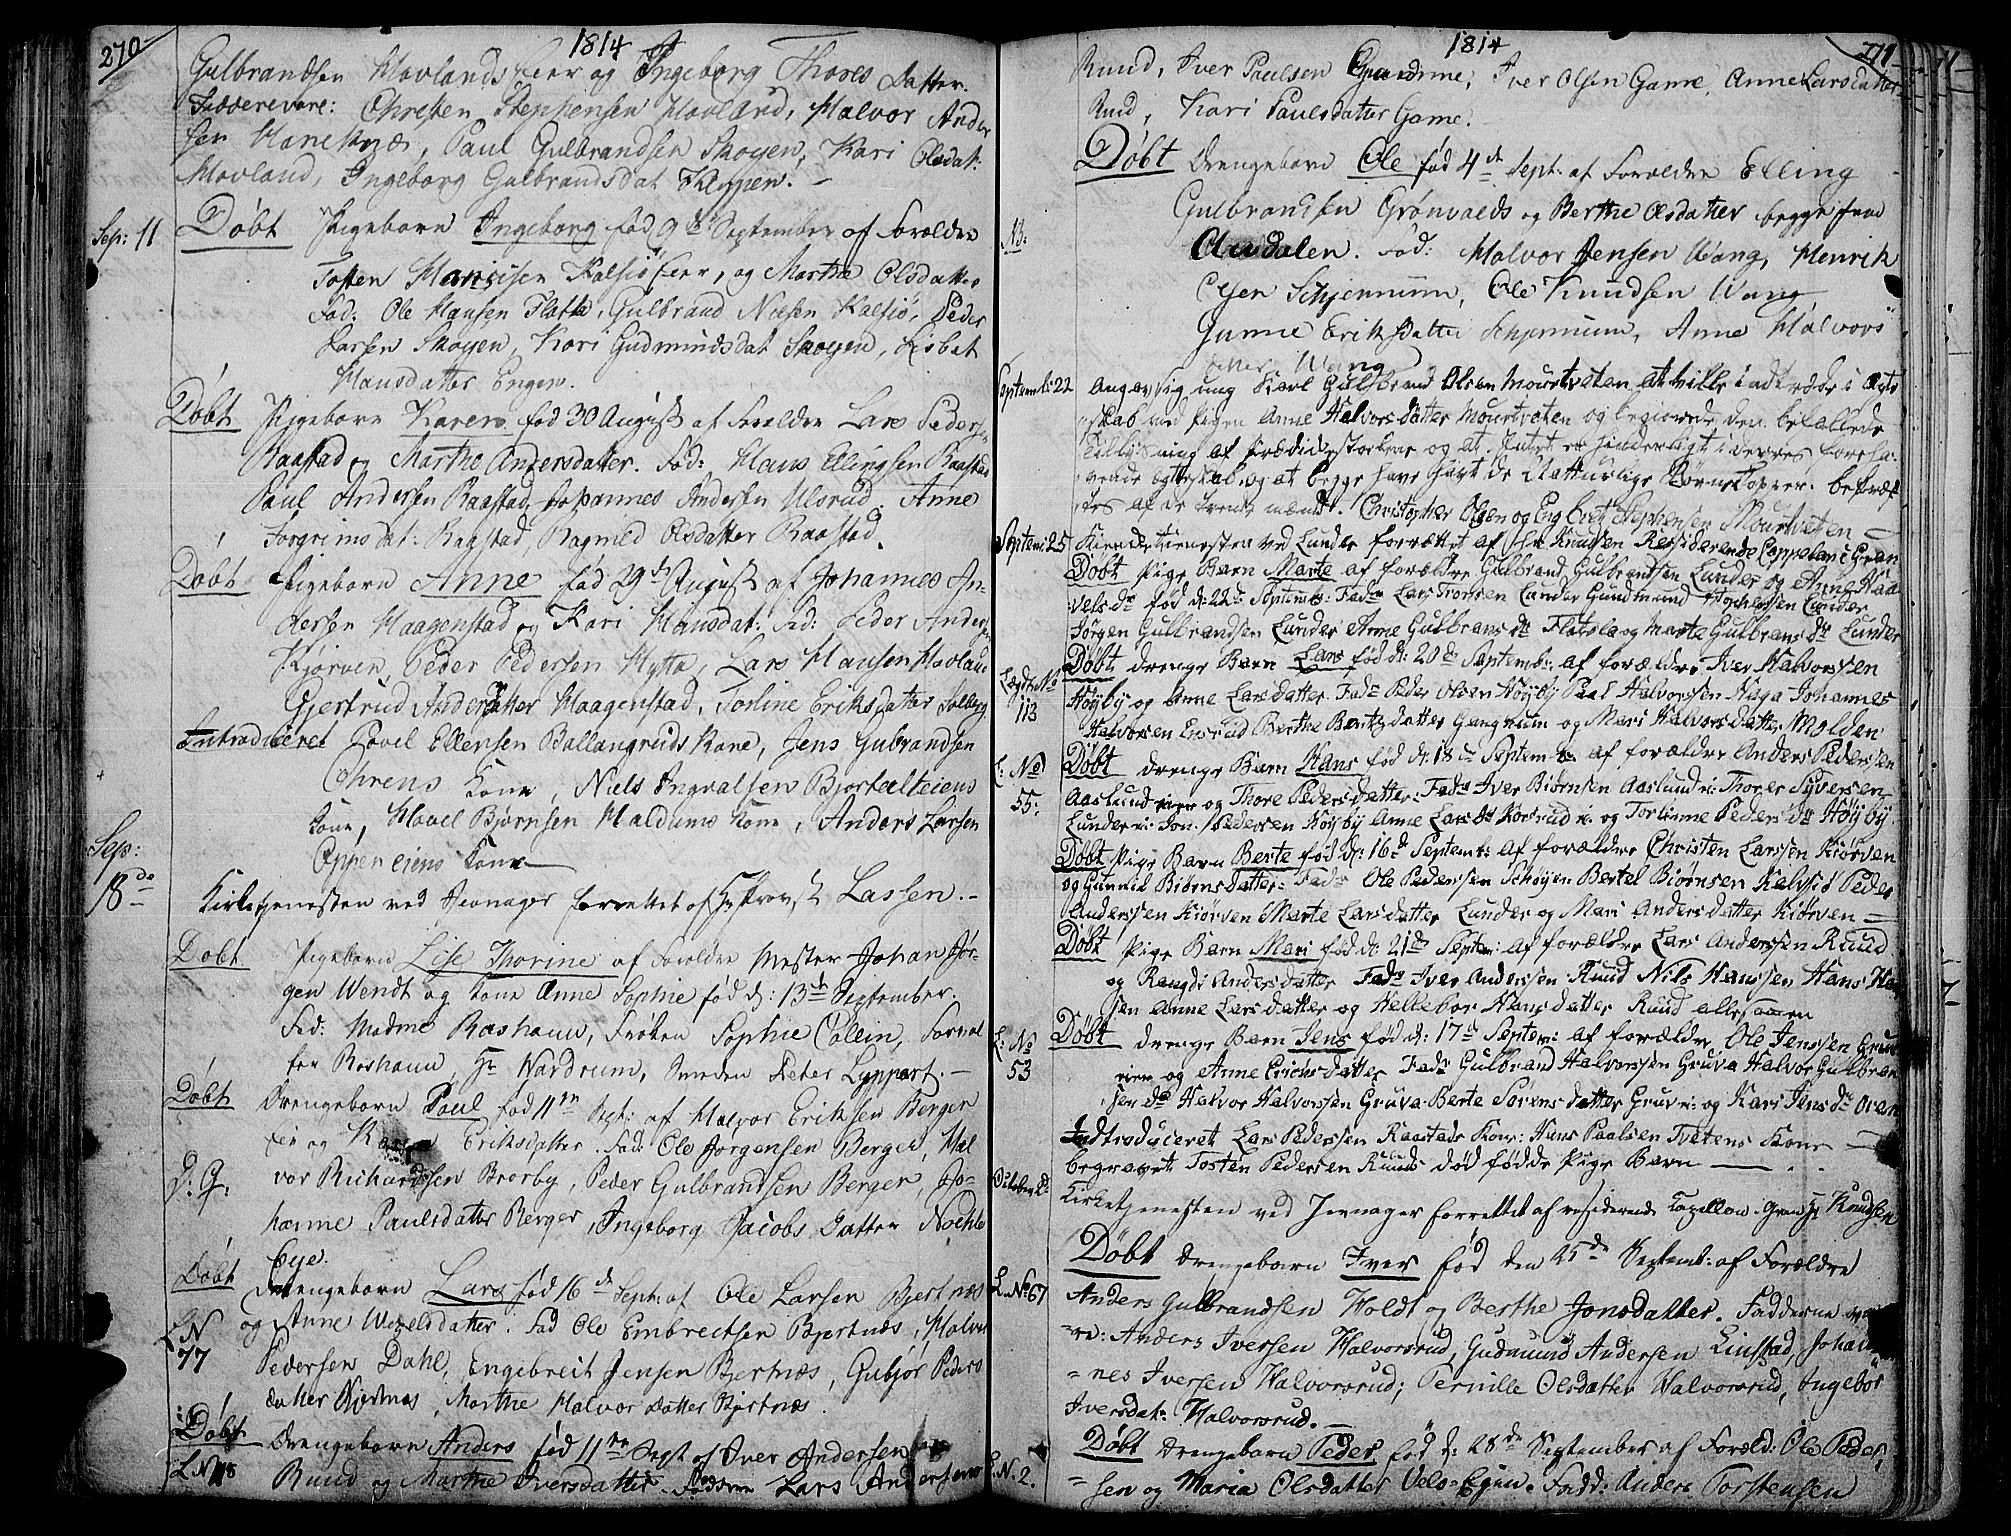 270
1814
Gulbrandsen Hovlands eier og Ingeborg Thores Datter.
Fadderevare: Christen Steppensen Hovland, Halvor Ander
sen Haneknæ, Paul Gulbrandsen Skoyen, Kari Olsdat:
Hovland, Ingeborg Gulbrandsdat Kleppen.
Sep: 11
Døbt Pigebarn Ingeborg fød 9de September af Forældre
Tosten Kalsiøeier, og Marthe Olsdatter
Fad: Ole Hansen Flatla, Gulbrand Nielsen Kalsiø, Peder
Larsen Skoyen, Kari Gudmundsdat Skoyen, Lisbet
Hansdatter Engen.
Døbt Pigebarn Karen fød 30 August af Forældre Lars Peders:
Raastad og Marthe Andersdatter. Fad: Hans Ellingsen Raastad
Paul Andersen Raastad, Johannes Andersen Ulsrud, Anne
Torgrimsdat: Raastad, Ragnild Olsdatter Raastad.
Døbt Pigebarn Anne fød 29de August af Johannes An-
dersen Haagenstad og Kari Hansdat: Fad: Peder Anders
Kjørven, Peder Pedersen Hytta, Lars Hansen Hovland
Gjertrud Andersdatter Haagenstad, Torline Eriksdatter Solberg
Introduceret Povel Ellensen Ballangruds Kone, Jens Gulbrandsen
Ohrens Kone, Niels Ingvalsen Bjorteliteiens
Kone, Hovel Bjørnsen Haldums Kone, Anders Larsen
Oppen eiens Kone
Sep:
18de
Kirketjenesten ved Jevnager forrettet af Hr Provst Lassen.
Døbt Pigebarn Lise Thorine af Forældre Mester Johan Jør-
gen Wendt og Kone Anne Sophie fød d: 13de September.
Fad: Madme Roshauw, Frøken Sophie Collein, Forval
ter Roshauw, Hr Nardrum, Smeden Peter Lyppert.
Døbt Drengebarn Paul fød 11te Sept: af Halvor Eriksen Berger
eie og Karen Eriksdatter. Fad: Ole Jørgensen Berger, Hal
vor Richardsen Brorby, Peder Gulbrandsen Berger, Jo-
hanne Paulsdatter Berger, Ingeborg Jacobs Datter Nøkle
bye.
Døbt Drengebarn Lars fød 16de Sept: af Ole Larsen Bjertnæs
og Anne Wexelsdatter. Fad Ole Embretsen Bjertnæs, Halvor
L N
77
Pedersen Dahl, Engebreit Jensen Bjertnæs, Gubjør Peders
datter Bjertnæs, Marthe Halvor Datter Bjertnæs.
Døbt Drengebarn Anders fød 11te Sept af Iver Andersen
L N 118
Ruud og Marthe Iversdatter. Faddere Lars Andersen
271
1814
Ruud, Iver Paulsen Game, Iver Olsen Game, Anne Larsdatter
Ruud, Kari Paulsdatter Game.
Døbt Drengebarn Ole fød 4de Sept: af Forældre Elling
Gulbrandsen Grønvolds og Berthe Olsdatter begge fra
N3:
Aadalen. Fad: Halvor Jensen Wang, Henrik
Olsen Schjennum, Ole Knudsen Wang
Gunne Eriksdatter Schjennum, Anne Halvors
datter Wang
Septemb: 22 Angav sig ung Karl Gulbrand Olsen Mourtveten at ville indtræde i Ægte
skab med Pigen Anne Halvorsdatter Mourtveten og begierede den befallede
Tillysning af Prædikestoelene og at Intet er hinderligt i deres foreha-
vende Egteskab, og at begge have havt de Natturlige Børne Kopper. bekræf
tes af de tvende mænd. Christopher Olsen og Eng bret Stephensen Mourtveten
Septem: 25 Kirketienesten ved Lunder forrettet af Hr Knudsen Residerende Cappelan i Gran
Døbt Pige Barn Marte af forældre Gulbrand Gulbrandsen Lunder og Anne Haa
velsdr fød d: 22de Septemb: Fadr Lars Ivorsen Lunder Gundmund Lunder
Jørgen Gulbrandsen Lunder Anne Gulbransdr Flatsla og Marte Gulbransdr Lunder
Døbt drenge Barn Lars fød d: 20de Septemb: af forældre Iver Halvorsen
Lægds No
113
Høyby og Anne Larsdatter. Fadr Peder Olsen Høyby Paal Halvorssen Haga Johannes
Halvorsen Ensrud Berthe Berntzdatter Gangnum og Mari Halvorsdatter Molden
L: No
55:
Døbt drenge Barn Hans fød d: 18de Septemb: af forældre Anders Pederssen
Aaslund eier og Thore Pedersdatter: Fadr Iver Biørnsen Aaslund e: Thorer Syversen
Lunder e: Jon Pedersen Høyby Anne Larsdr Kosrud e: og Torlinne Pedersdr Høyby.
Døbt Pige Barn Berte fød d: 16de Septemb: af forældre Christen Larssen Kiørven
og Gunnil Biørnsdatter: Fadr Ole Pedersen Schøyen Bertel Biørnsen Kalvsiø Peder
Anderssen Kiørven Marte Larsdatter Lunder og Mari Andersdatter Kiørven
Døbt Pige Barn Mari fød d: 21de Septem: af forældre Lars Anderssen Ruud
og Rangdi Andersdatter Fadr Iver Andersen Ruud Nils Hanssen Hans Han
sen Anne Larsdatter og Hellebor Hansdatter Ruud allesamen
L: No
53
Døbt drenge Barn Jens fød d: 17de Septem: af forældre Ole Jenssen Gruv
eier og Anne Erichsdatter Fadr Gulbrand Halvorssen Gruva Halvor Gulbran
sen do Halvor Halvorssen Gruva Berte Sørensdatter Gruv e: og Kari Jensdr Oren
Indtroduceret Lars Pederssen Raastads Kone: Hans Paalsen Tvetens Kone
begravet Tosten Pedersen Ruuds død fødde Pige Barn
October 2de Kirketjenesten ved Jevnager forrettet af residerende Capellan i Gran Hr Knudsen
Døbt Drengebarn Iver fød den 25de Septemb: af Forældre
L. No 67
Anders Gulbrandsen Holdt og Berthe Jonsdatter. Fadderne va-
re: Anders Iversen Halvorsrud, Gudmund Andersen Linstad, Johan-
nes Iversen Halvorsrud; Pernille Olsdatter Halvorsrud, Ingebor
Iversdat: Halvorsrud.
Døbt Drengebarn Peder fød d: 28de September af Foræld: Ole Peder
L. N. 2.
sen og Maria Olsdatter Velo-Egen. Fadd: Anders Torstensen